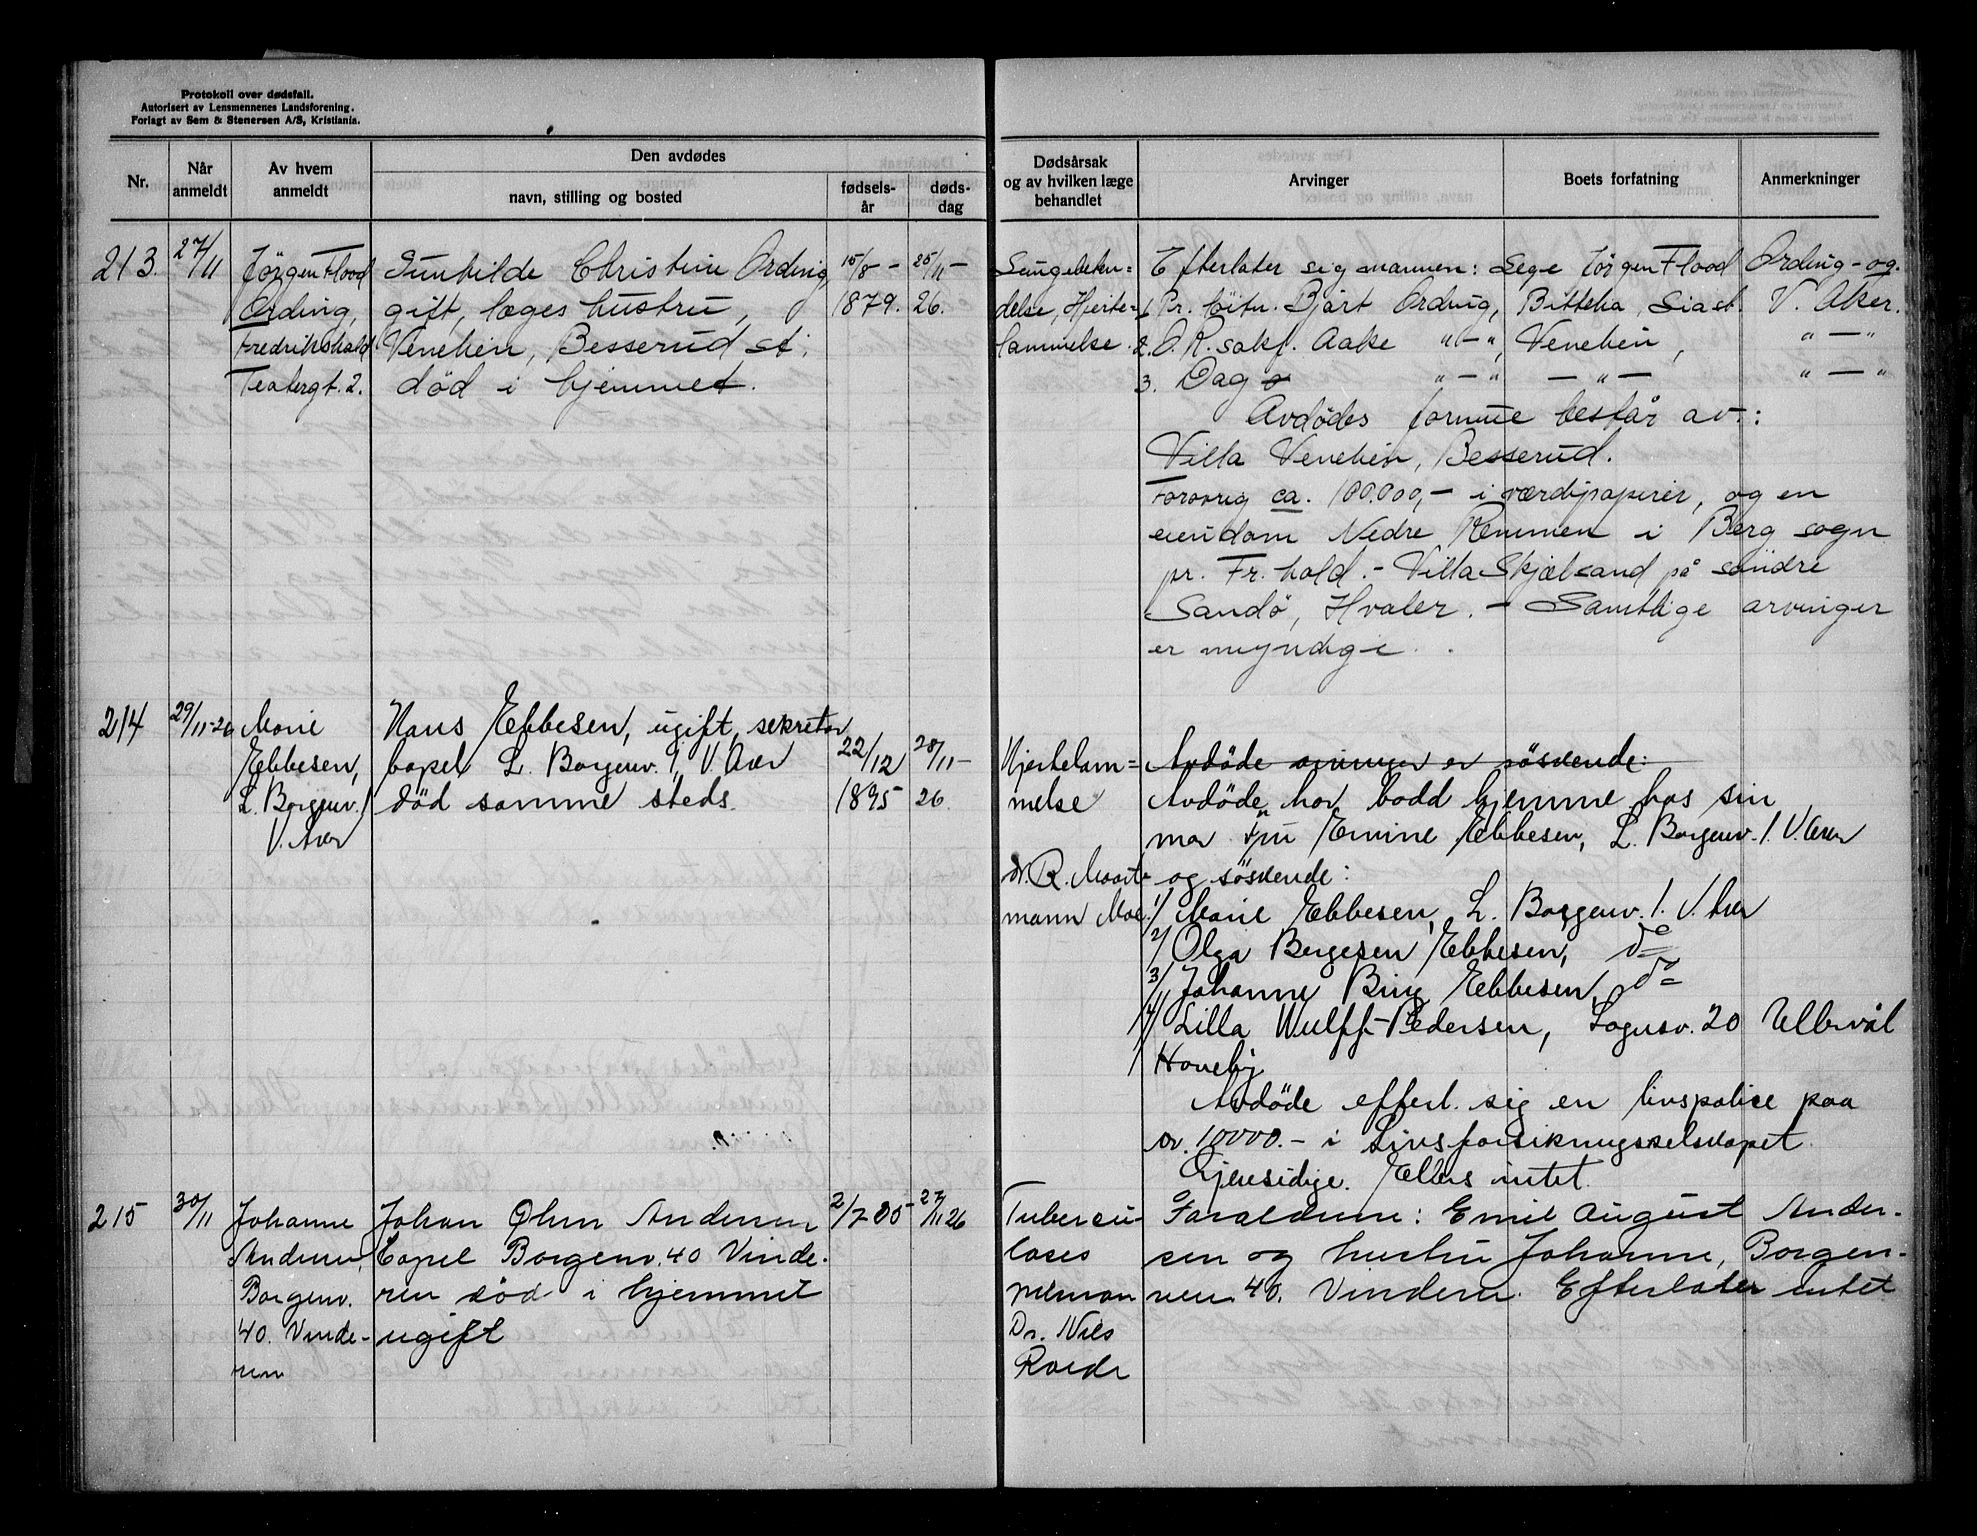 Protokoll over dødsfall.
Autorisert av Lensmennenes Landsforening.
Forlagt av Sem & Stenersen A/S, Kristiania.
Nr.
Når anmeldt
Av hvem anmeldt
Den avdødes
navn, stilling og bosted
fødsels-år
døds-dag
Dødsårsak og av hvilken læge behandlet
Arvinger
Boets forfatning
Anmerkninger
213.
27/11
Jörgen Flood
Ording,
Fredrikshald
Teatergt. 2.
Gunhilde Christine Ording
gift, læges hustru,
Veneheim, Besserud st.
død i hjemmet.
15/8 -
1879.
25/11 -
26.
Lungebeten=
delse, Hjerte=
lammelse.
Efterlater sig mannen: Lege Jörgen Flood Ording - og.
1. Bjart Ording, V. Aker.
2. Aake " — ", " — "
3. Dag " — " — " — " — "
Avdødes formue består av:
Villa Besserud.
Forøvrig ca. 100.000,- i værdipapirer, og en
eiendom Nedre Remmen i Berg sogn
pr. Fr.hald. - Villa Skjælsand på söndre
Sandö, Hvaler. - Samtlige arvinger
er myndige.
214
29/11-26
Marie
Ebbesen,
L. Borgenv. 1
V. Aker
Hans Ebbesen, ugift, sekretær
bopel L. Borgenv. 1, V. Aker
død samme steds.
22/12
1895
28/11 -
26.
Hjertelam=
melse
dr. R.
Avdöde arvinger er söskende:
Avdöde har bodd hjemme hos sin
mor fru Emine Ebbesen, L. Borgenv. 1. V. Aker
og söskende:
1/ Marie Ebbesen, L. Borgenv. 1. V. Aker
2/ Olga Bergesen Ebbesen, do
3/ Johanne Bing Ebbesen, do
4/ Lilla Wulff-Pedersen, Sognsv. 20 Ullevål
Haveby
Avdöde efterl. sig en livspolice paa
kr. 10000.- i Livsforsikringsselskapet
Gjensidige. Ellers intet.
215
30/11
Johanne
Andersen,
Borgenv.
40. Vinde-
ren
Johan Ohm Andersen
bopel Borgenv. 40 Vinde-
ren död i hjemmet
ugift
2/7 05
27/11 26
Tubercu-
loses
Dr. Niels
Roede
Foreldrene: Emil August Ander-
sen og hustru Johanne, Borgen-
veien 40. Vinderen. Efterlater intet